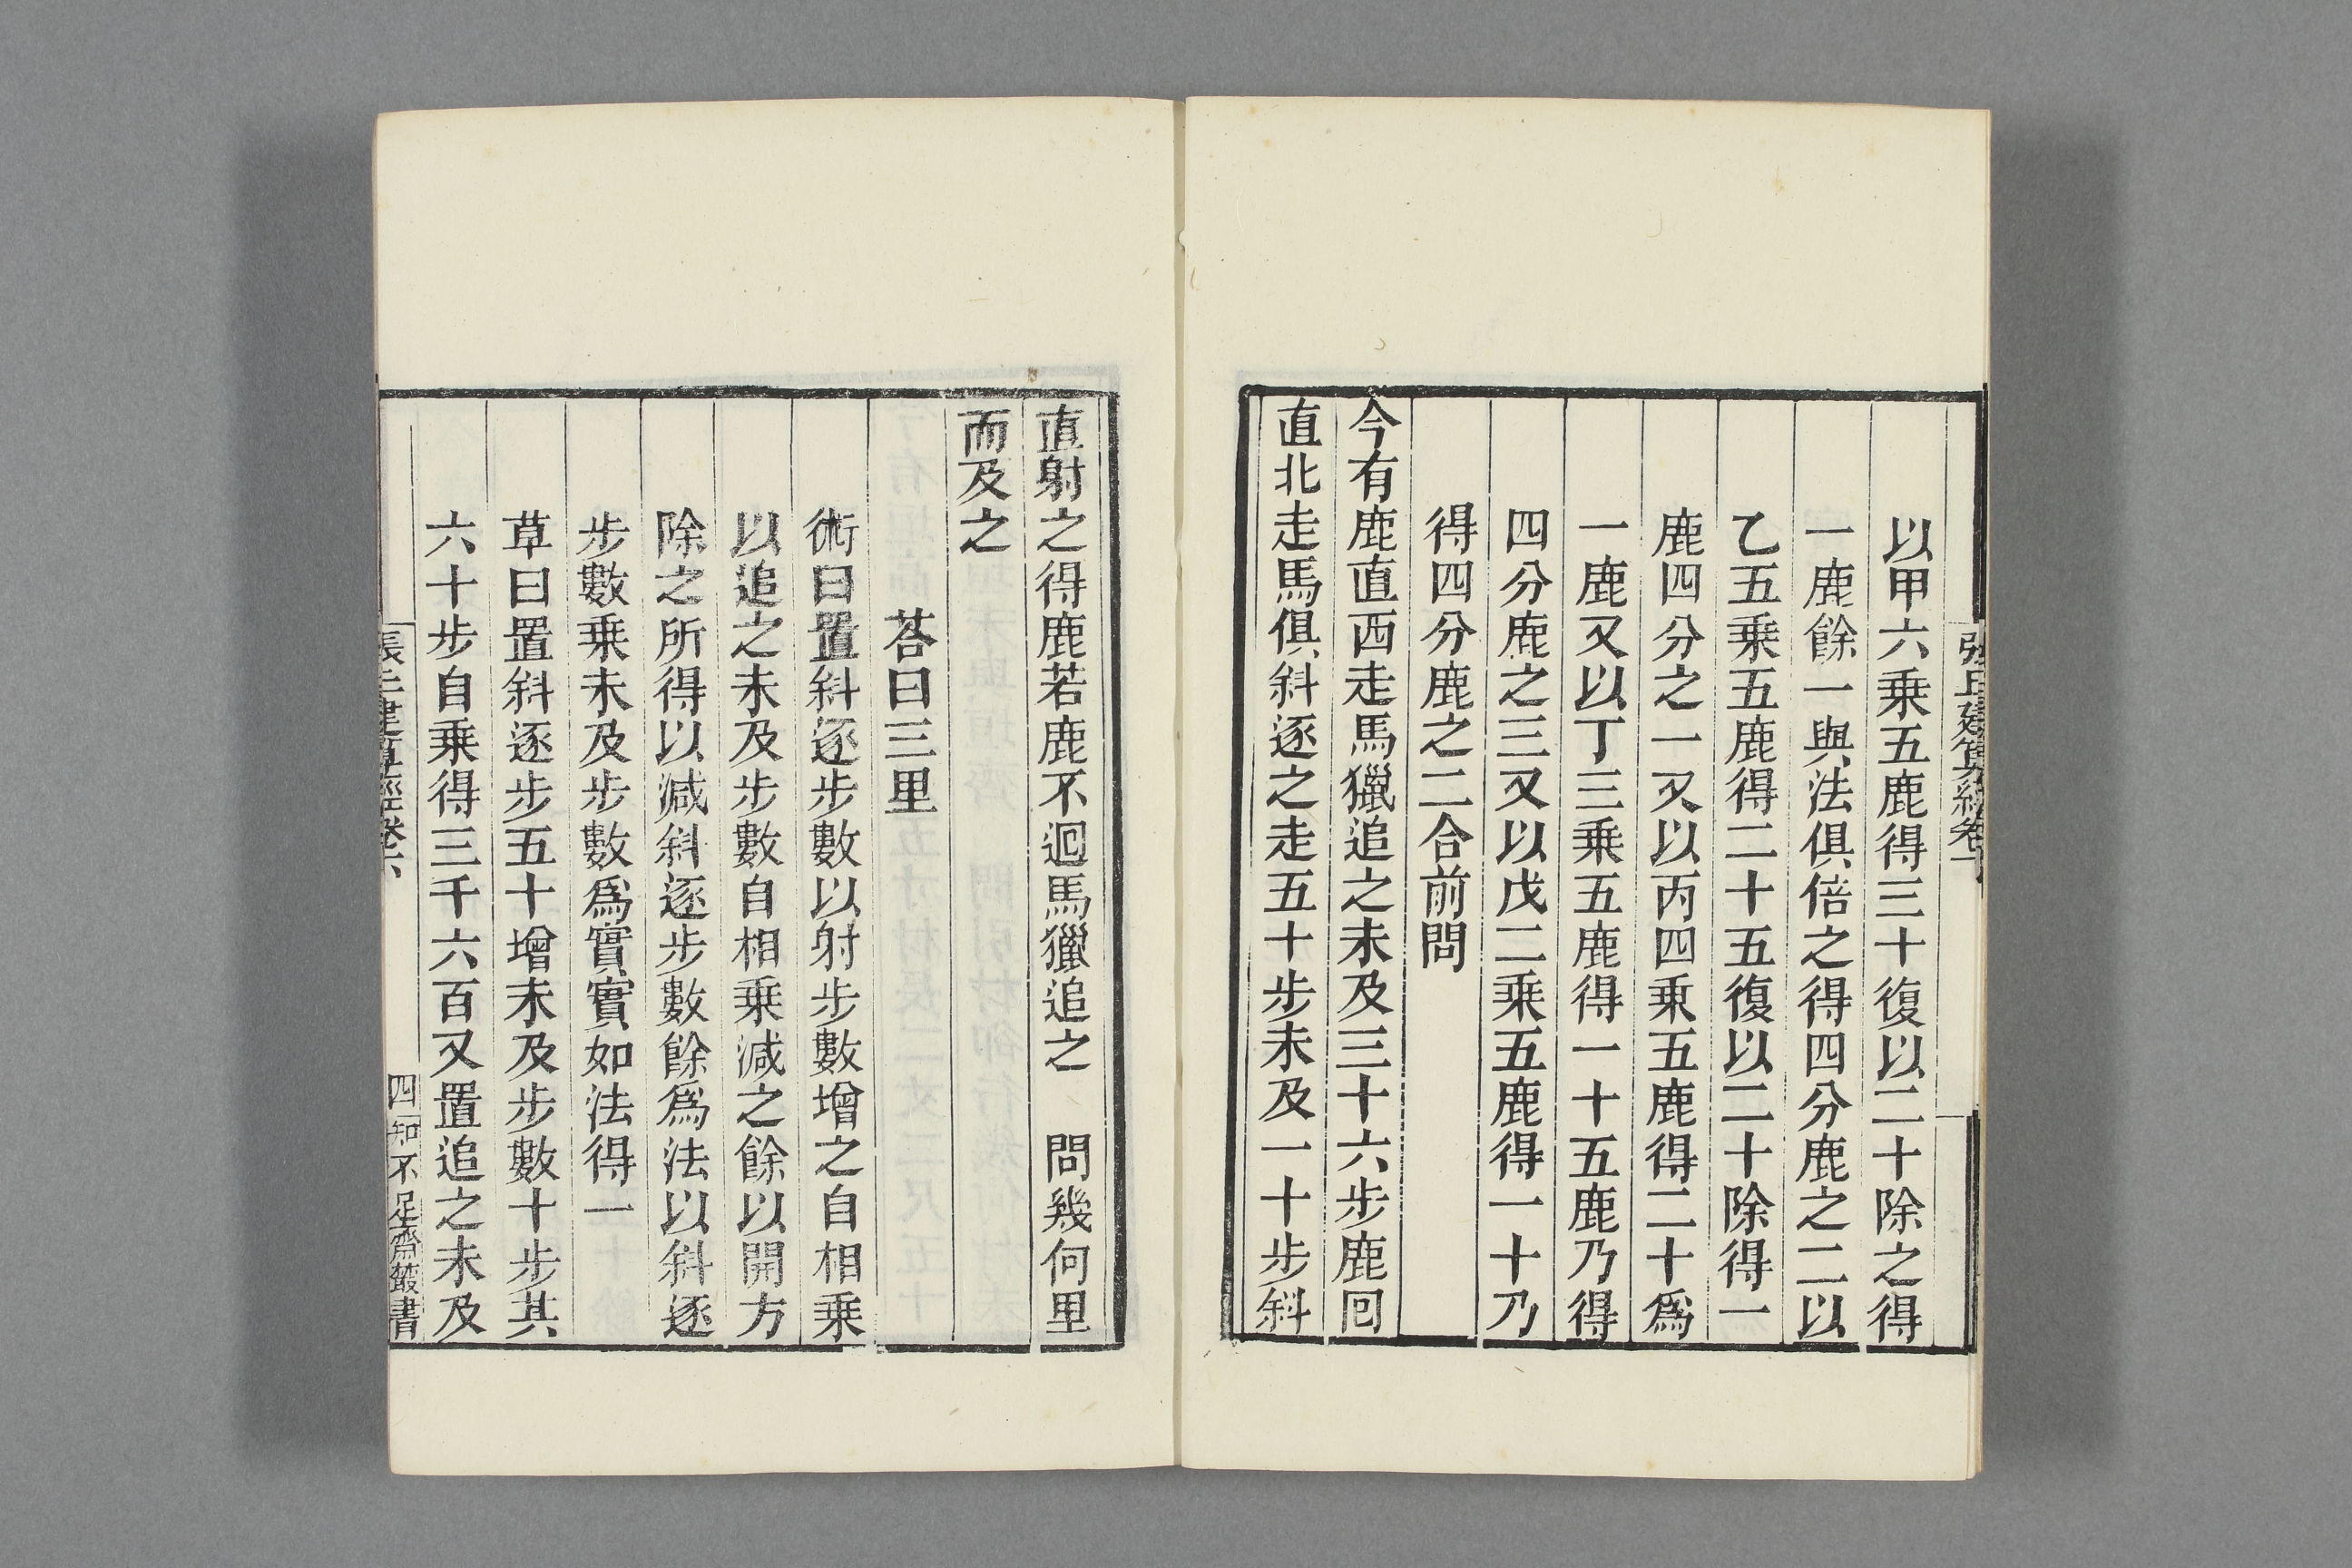 以甲六乗五鹿得三十復以二十除之得
一鹿餘一與法俱倍之得四分鹿之二以
乙五乗五鹿得二十五復以二十除得一
鹿四分之一又以丙四乗五鹿得二十爲
一鹿又以丁三乗五鹿得一十五鹿乃得
四分鹿之三又以戊二乗五鹿得一十乃
得四分鹿之二合前問
今有鹿直西走馬獵追之未及三十六步鹿囘
直北走馬俱斜逐之走五十步未及一十步斜
直射之得鹿若鹿不迴馬獵追之 問幾何里
而及之
荅曰三里
術曰置斜逐步數以射步數增之自相乗
以追之未及步數自相乗減之餘以開方
除之所得以減斜逐步數餘爲法以斜逐
步數乗未及步數爲實實如法得一
草曰置斜逐步五十增未及步數十步其
六十步自乗得三千六百又置追之未及
四
知不足齋叢書